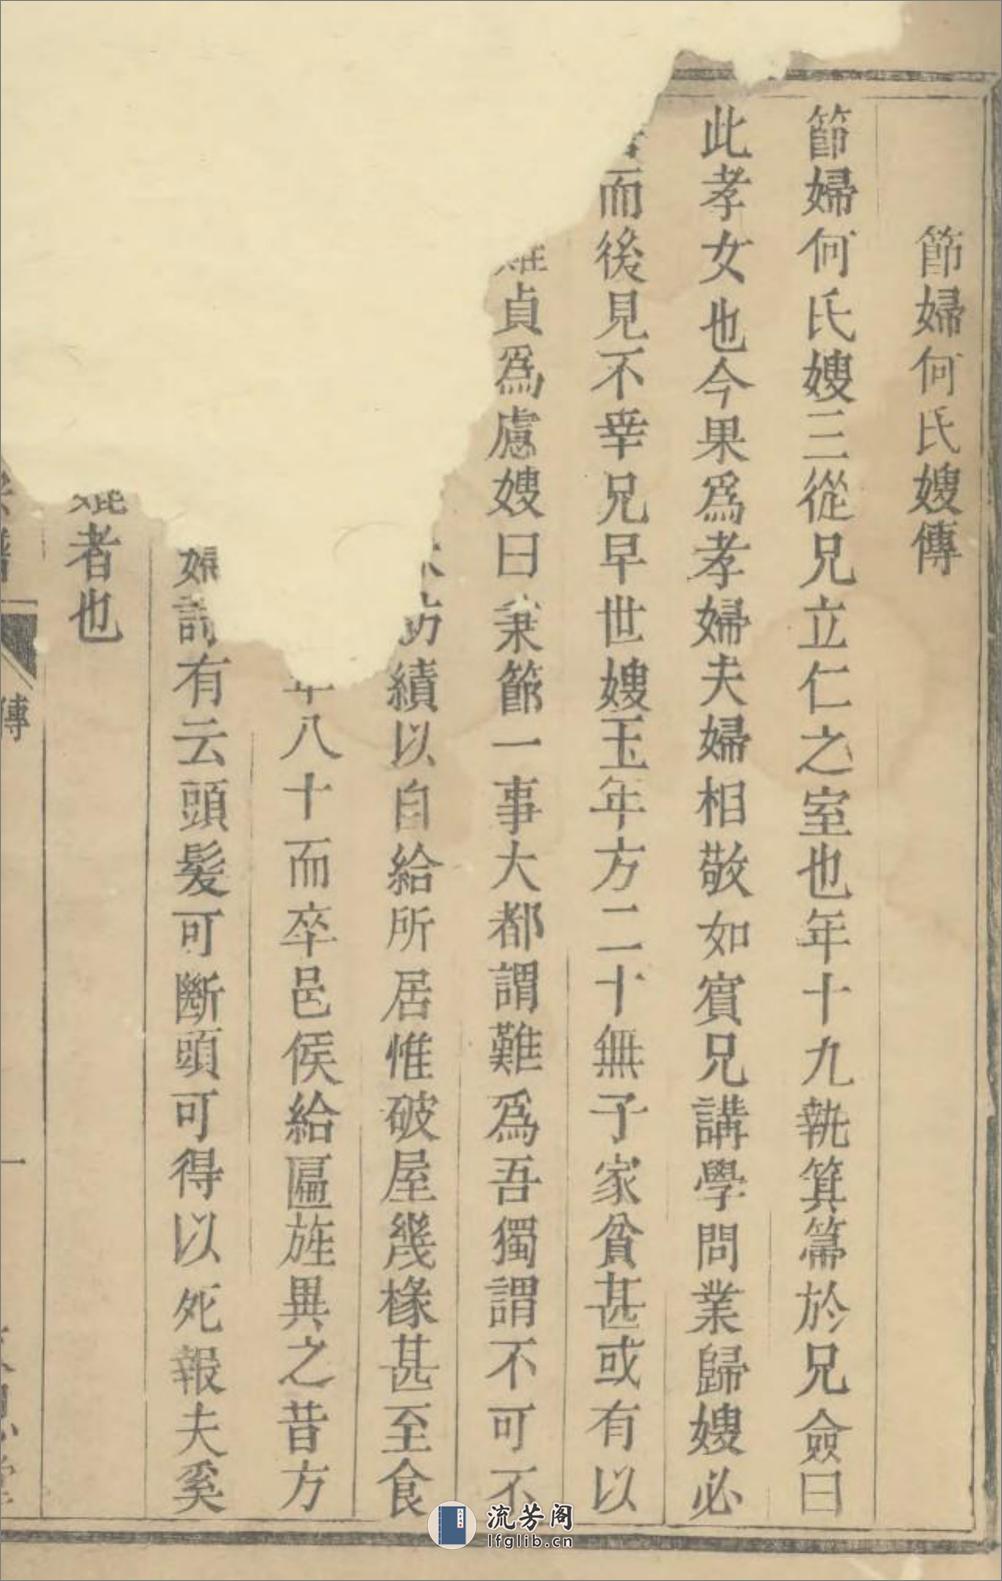 節婦何氏嫂傳
節婦何氏嫂三從兄立仁之室也年十九執箕篇於兄僉曰
此孝女也今果爲孝婦夫婦相敬如賓兄講學問業歸嫂必
而後見不幸兄早世嫂玉年方二十無子家貧甚或有以
難貞爲慮嫂曰秉節一事大都謂難爲吾獨謂不可不
紡績以自給所居惟破屋幾椽甚至食
年八十而卒邑侯給匾旌異之昔方
婦詩有云頭髮可斷頭可得以死報夫奚
者也
傳
一
流芳阁
lfglib.cn